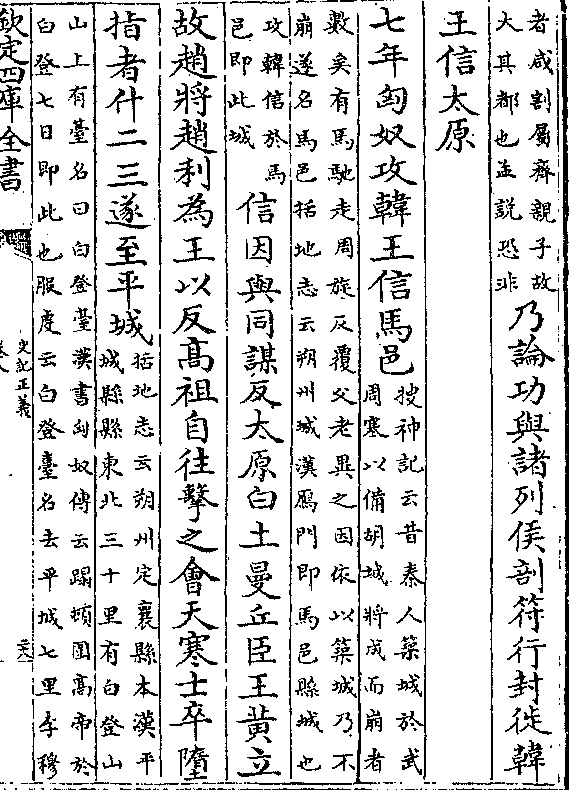 者咸割屬齊親子故
大其都也孟說恐非
乃論功與諸列侯剖符行封徙韓
王信太原
七年匈奴攻韓王信馬邑
搜神記云昔秦人築城於武
周塞以備胡城將成而崩者
數矣有馬馳走周旋反覆父老異之因依以築城乃不
崩遂名馬邑括地志云朔州城漢鴈門即馬邑縣城也
攻韓信於馬
邑即此城
信因與同謀反太原白土曼丘臣王黃立
故趙將趙利為王以反高祖自往擊之會天寒士卒墮
指者什二三遂至平城
括地志云朔州定襄縣本漢平
城縣縣東北三十里有白登山
山上有臺名曰白登臺漢書匈奴傳云蹋頓圍高帝於
白登七日即此也服虔云白登臺名去平城七里李穆
欽定四庫全書
史記正義
卷八
二六